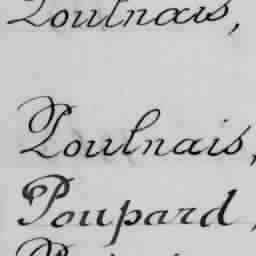 Poulnais,
Poulnais,
Poupard,